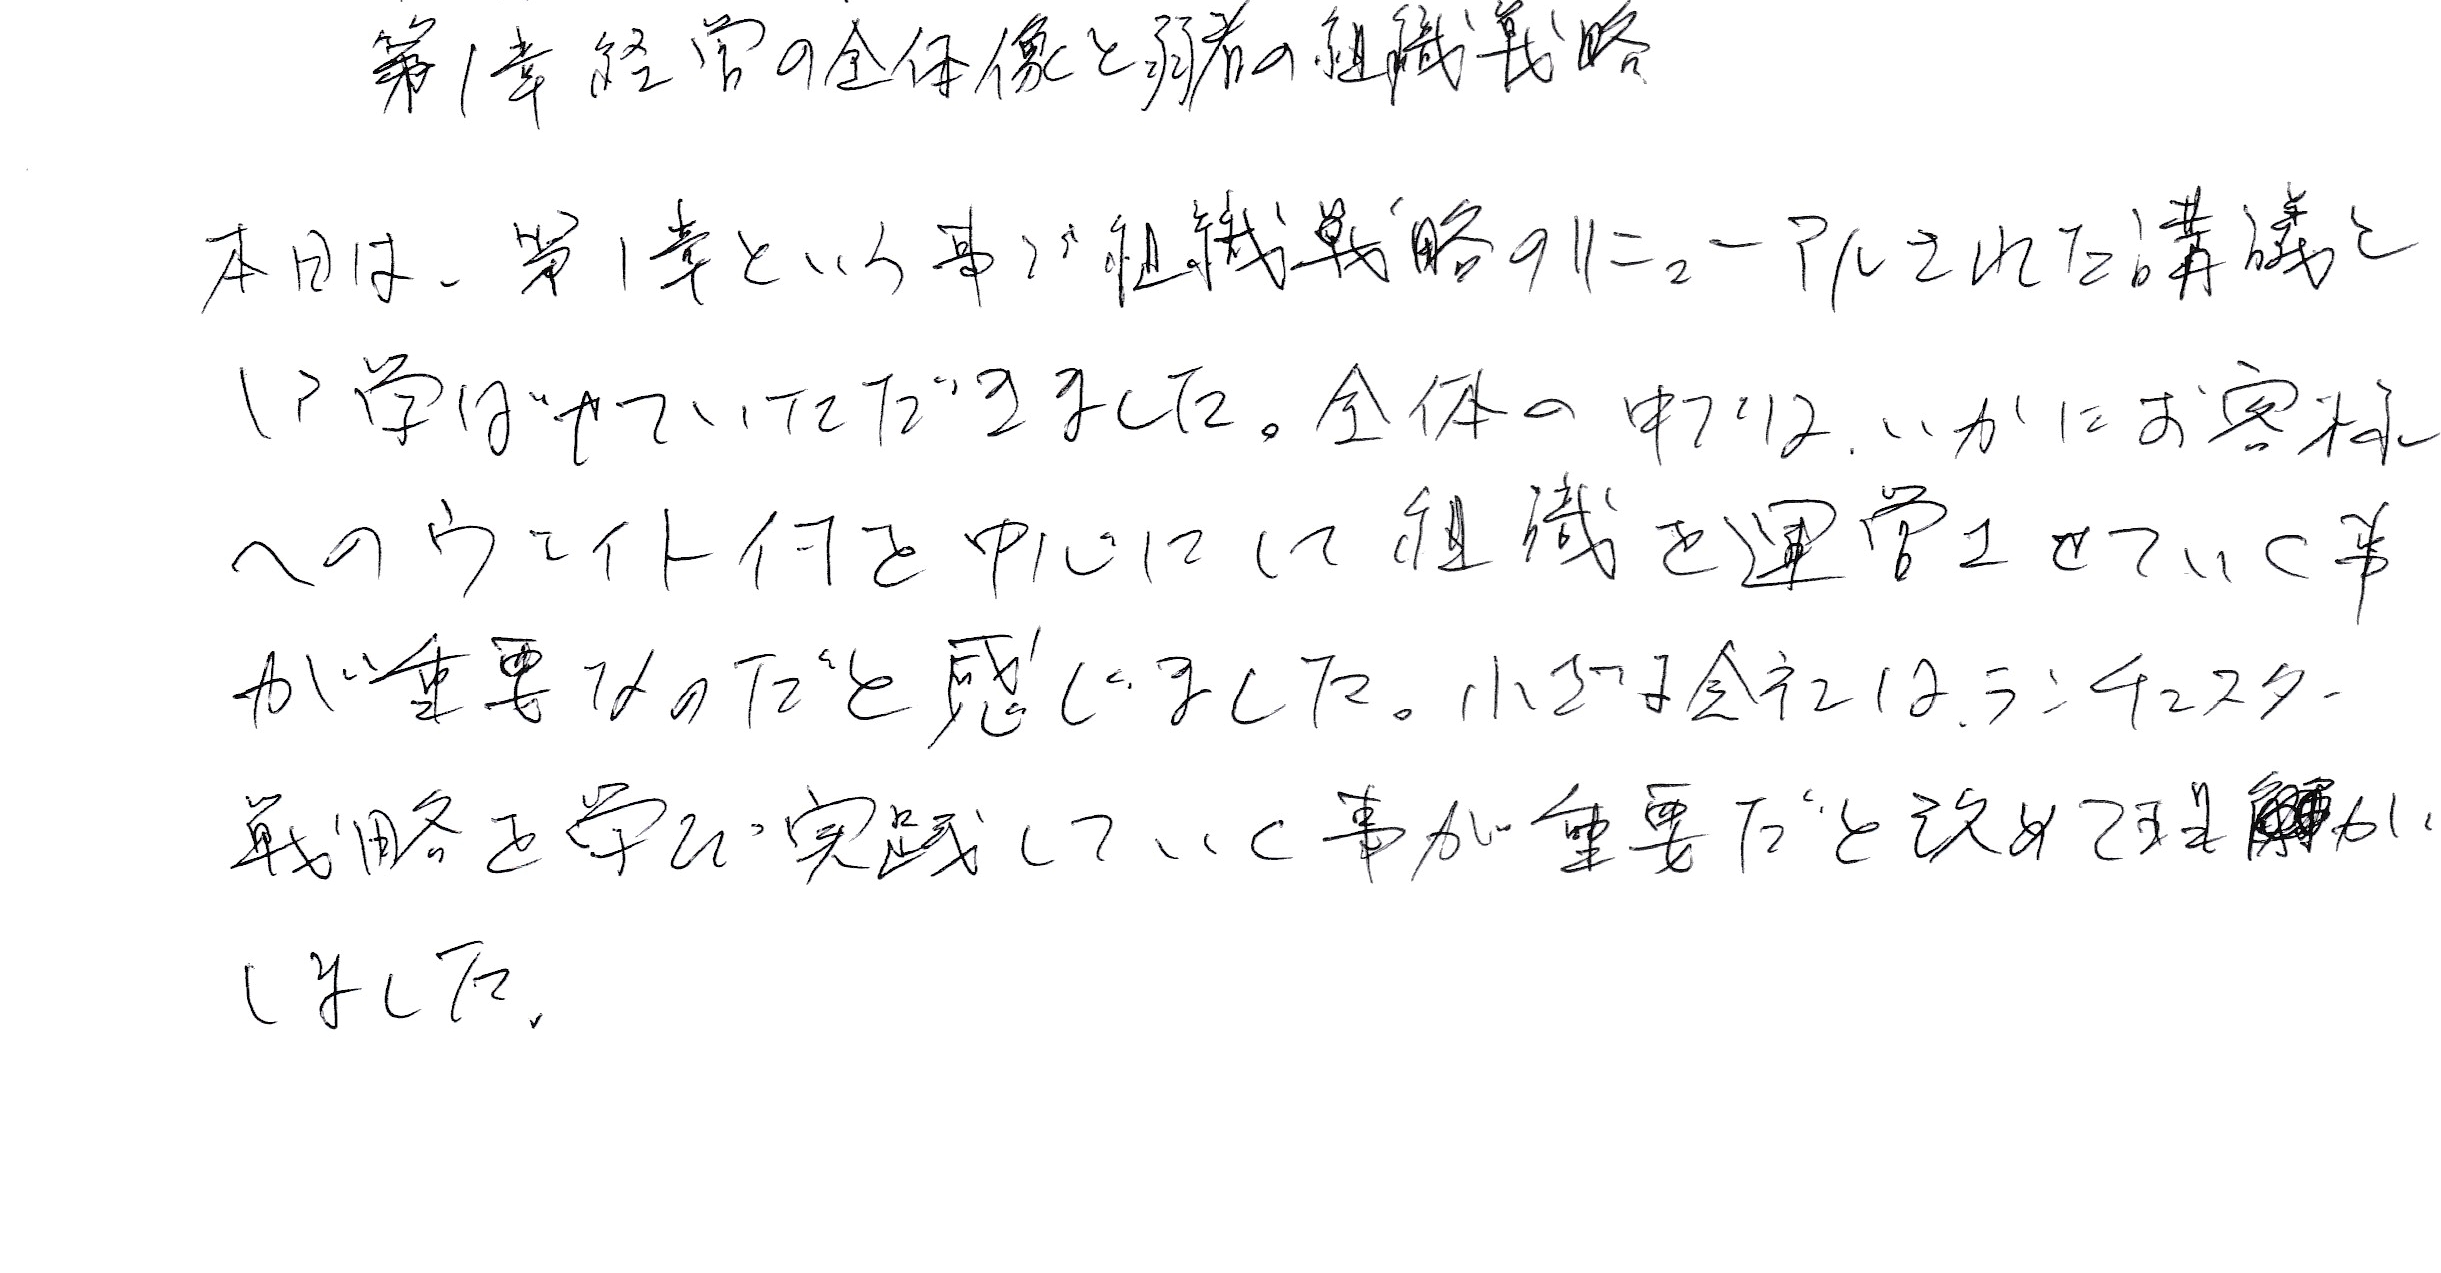 第1章 経営の全体像と弱者の組織戦略
本日は、第1章という事で組織戦略のリニューアルされた講義と
い学ばせていただきました。全体の中では、いかにお客様
へのウエイト付を中心にして組織を運営させていく事
が重要なのだと感じました。小さな会社は、ランチェスター
戦略を学び実践していく事が重要だと改めて理解が
しました。